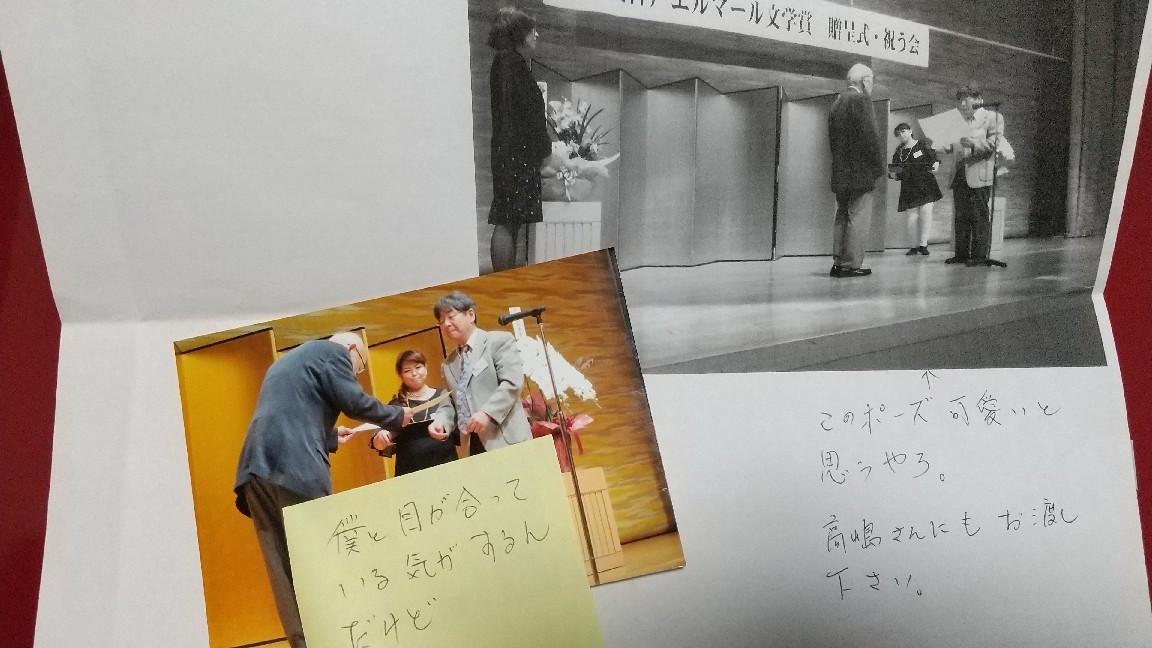 エルマール文学賞 贈呈式・祝う会
↑
このポーズ 可愛いと
思うやろ。
高嶋さんにも お渡し
下さい。
僕と目が合って
いる気がするん
だけど